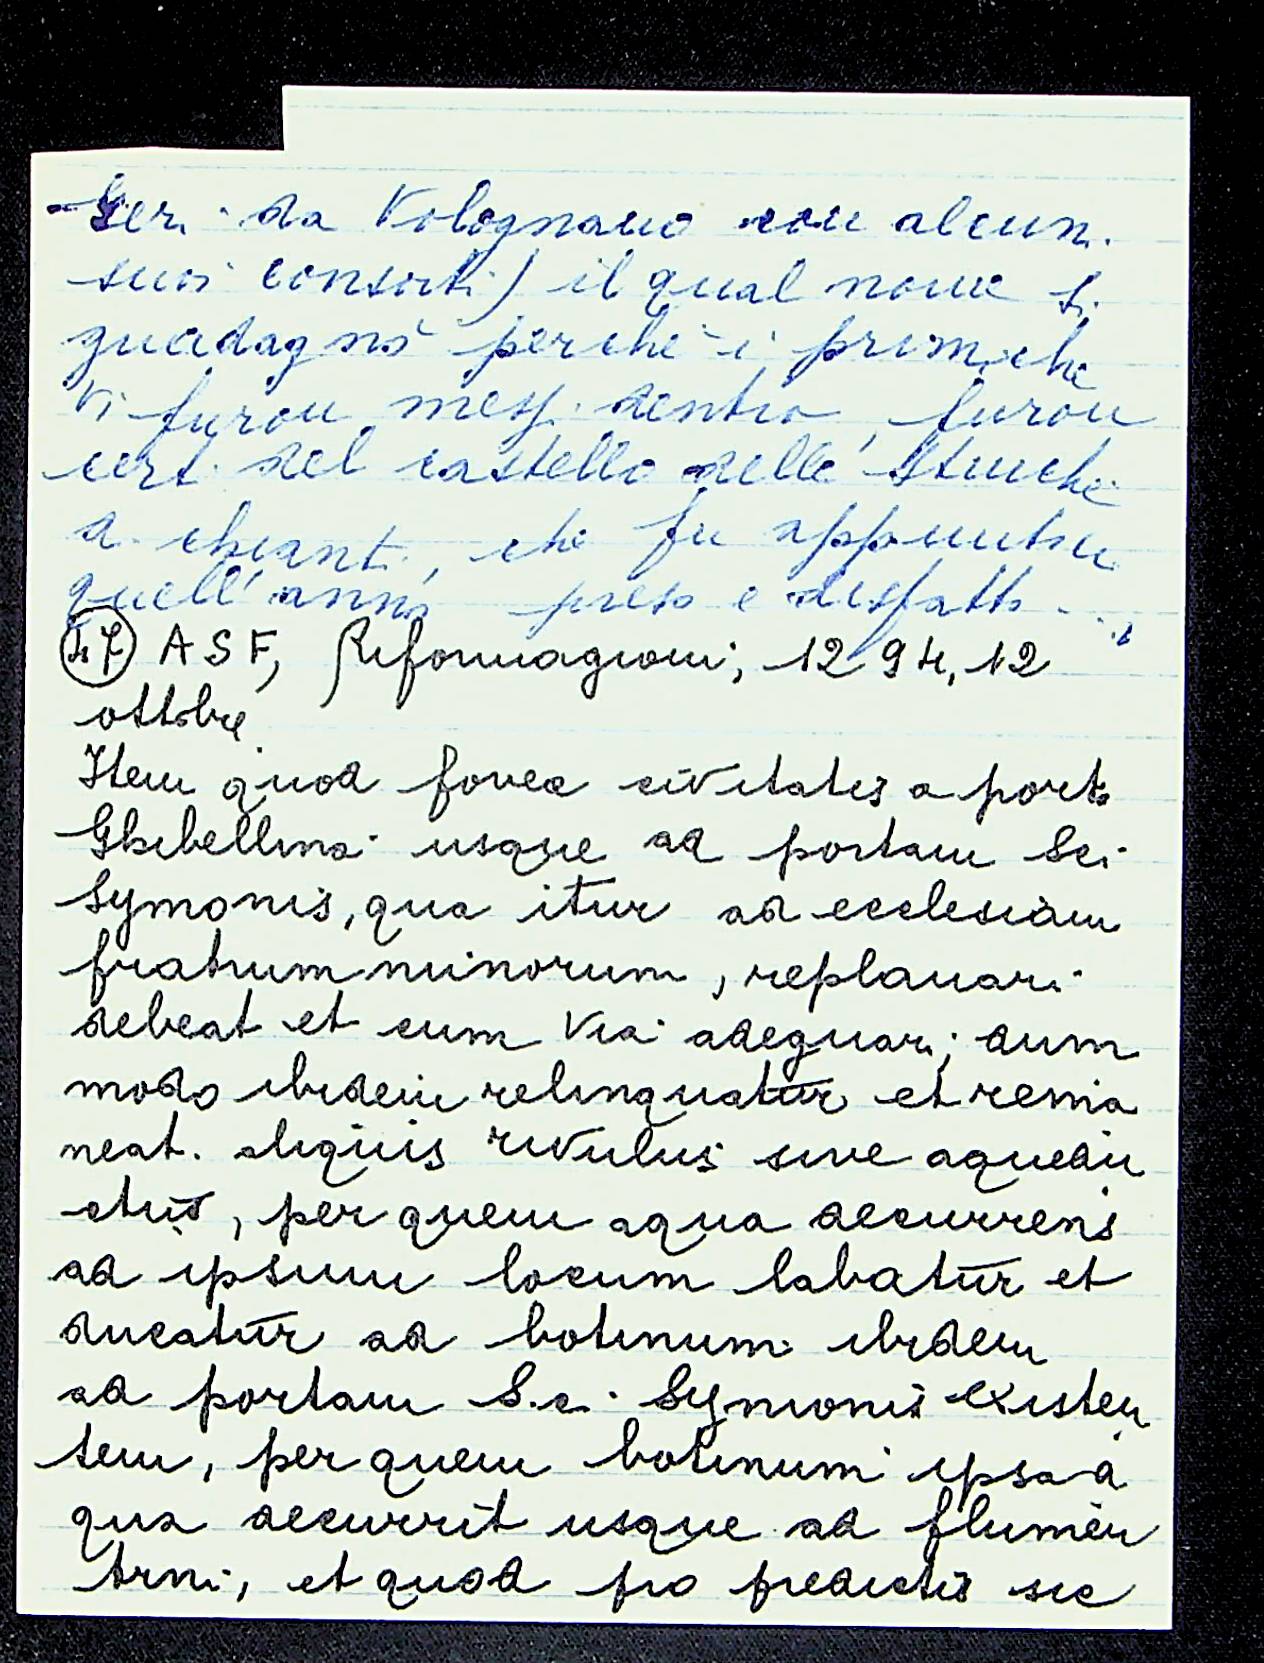 - Geri da Volognano con alcuni
suoi consorti) il qual nome si
guadagnò perché i primi che
vi furon messi dentro, furon
certi del castello delle Stinche
a Chianti, che fu appunto in
quell'anno preso e disfatto -
(47) ASF, Riformagioni, 1294, 12
ottobre
Item quod fovee civitatis a porta
Ghibellina usque ad portam Sci
Symonis, qua itur ad ecclesiam
fratrum minorum, replanari
debeat et cum via adeguari; dum
modo ibidem relinquatur et rema
neat. aliquis rivulus sive aquedu
ctus, per quem aqua decurrens
ad ipsum locum labatur et
ducatur ad botinum ibidem
ad portam S.c. Symonis existen
tem, per quem botinum ipsa a
qua decurrit usque ad flumen
Arni, et quod pro predictis sic